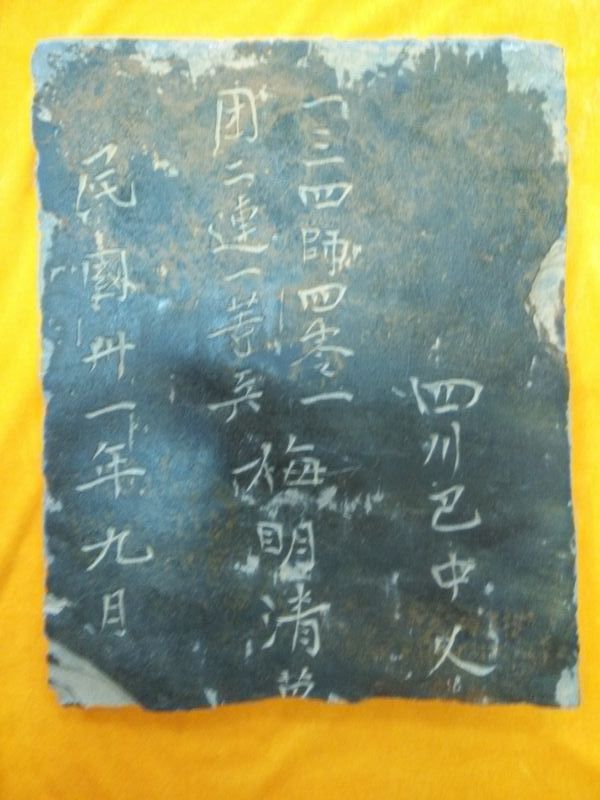 四川巴中人
一三四師四零一
团二連一等兵
梅明清
民國卅一年九月